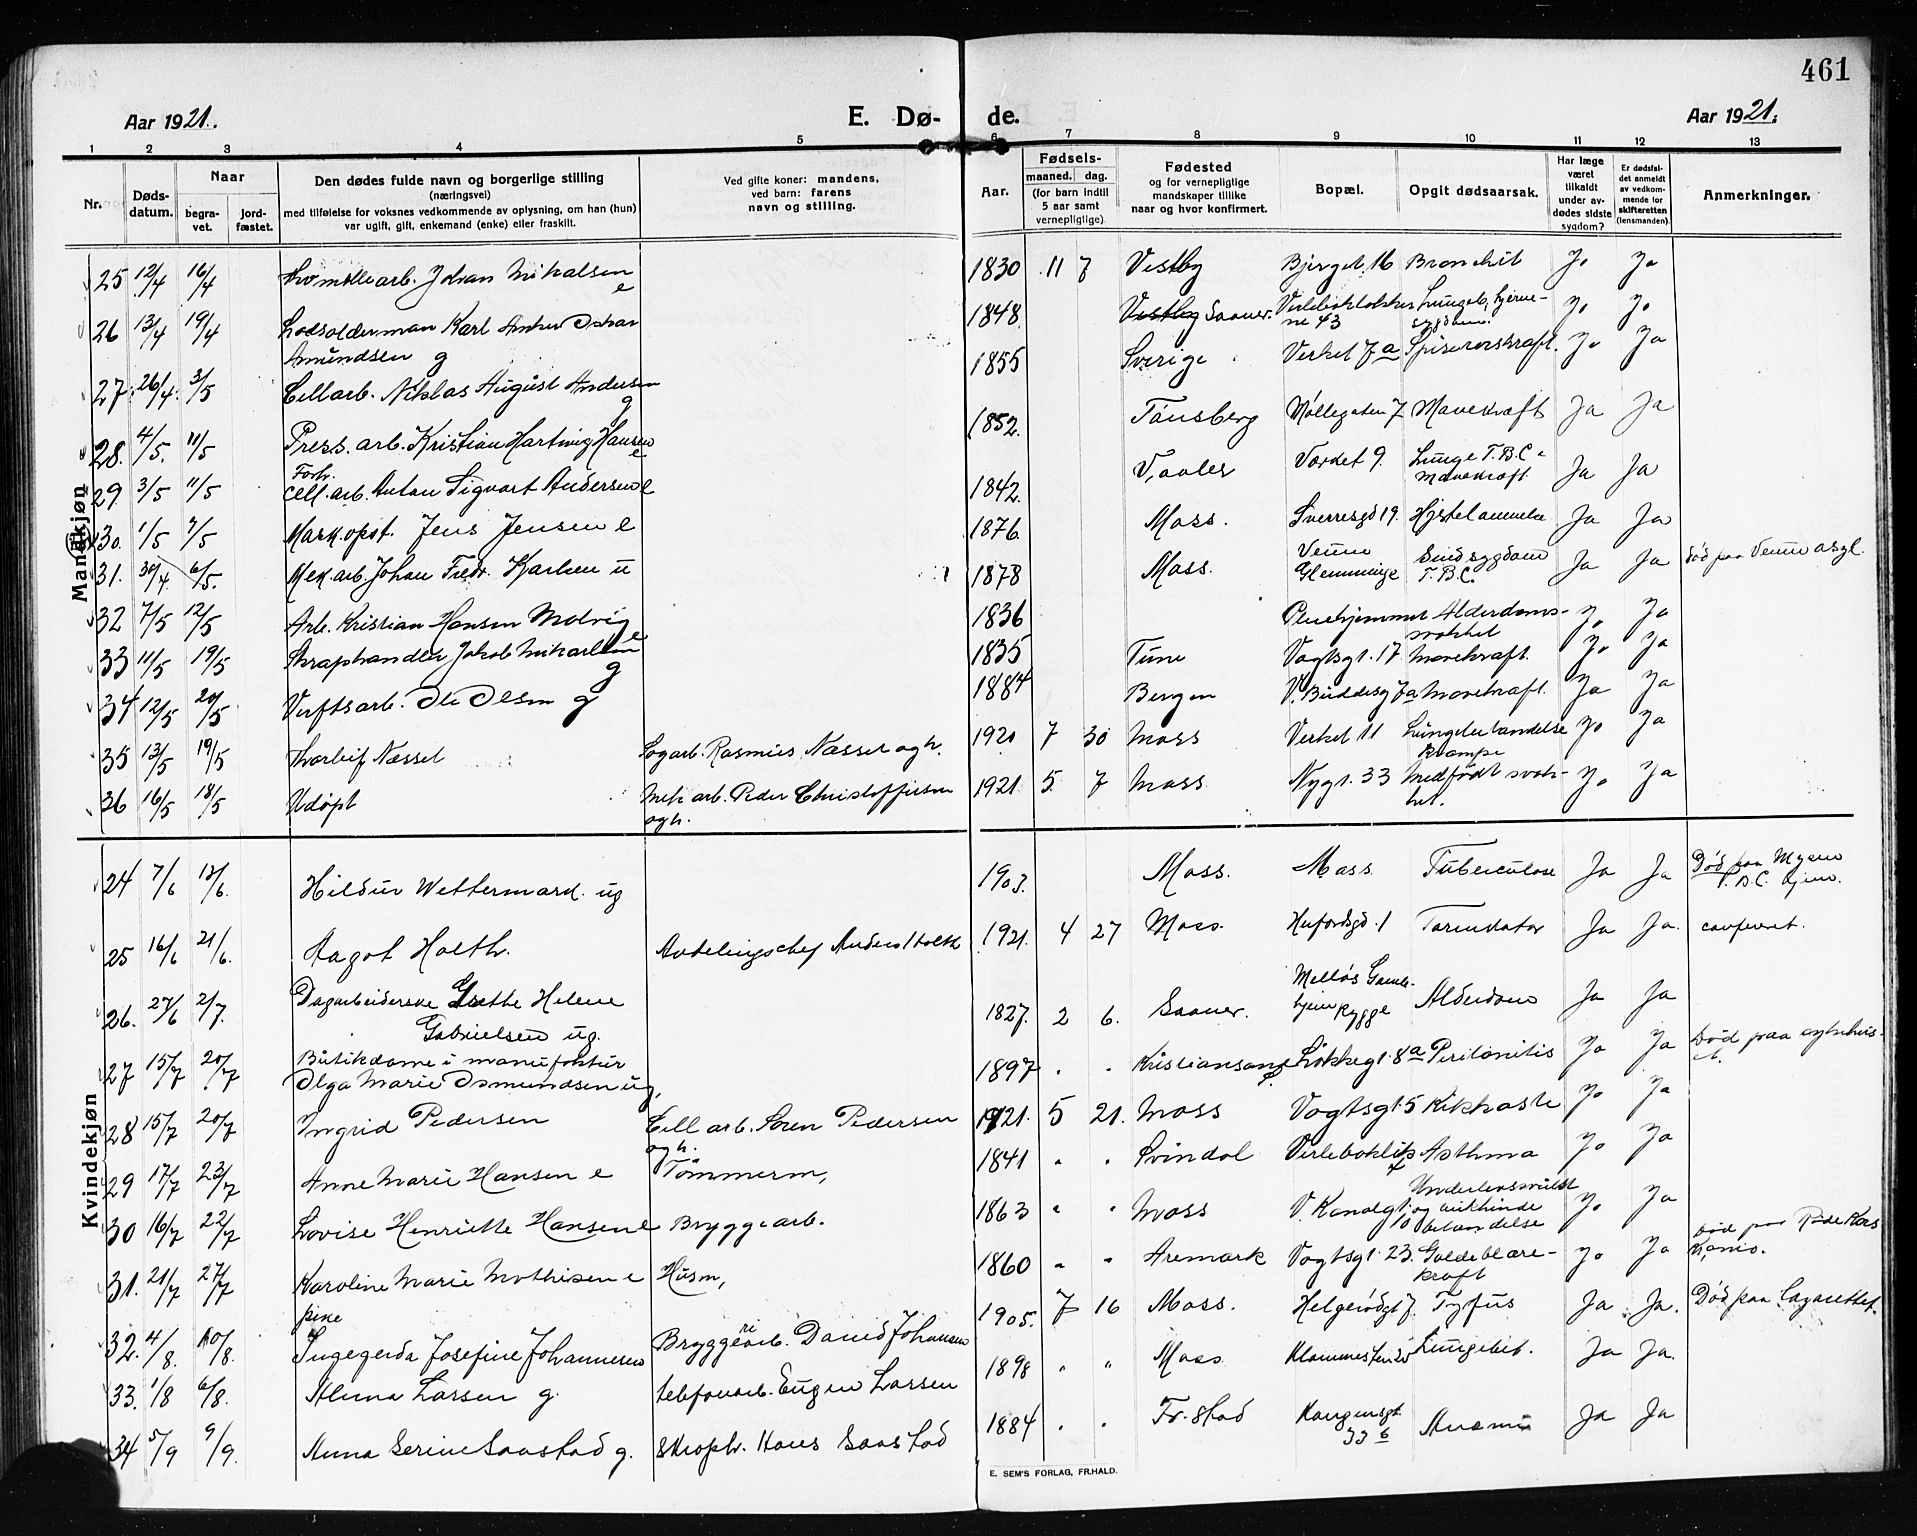 461
Aar 1921.
E. Dø-
de.
Aar 1921.
1 2 3 4 5 6 7 8 9 10 11 12 13
Nr.
Døds-
datum.
Naar
begra-
vet.
jord-
fæstet.
Den dødes fulde navn og borgerlige stilling
(næringsvei)
med tilføielse for voksnes vedkommende av oplysning, om han (hun)
var ugift, gift, enkemand (enke) eller fraskilt.
Ved gifte koner: mandens,
ved barn: farens
navn og stilling.
Aar.
Fødsels-
maaned. dag.
(for barn indtil
5 aar samt
vernepligtige).
Fødested
og for vernepligtige
mandskaper tillike
naar og hvor konfirmert.
Bopæl.
Opgit dødsaarsak.
Har læge
været
tilkaldt
under av-
dødes sidste
sygdom?
Er dødsfal-
det anmeldt
av vedkom-
mende for
skifteretten
(lensmanden).
Anmerkninger.
Mandkjøn
25 12/4 16/4 Johan Mikalsen e 1830 11 7 Vestby Bjerget 16 Bronchit Ja Ja
26 13/4 19/4 Lodsolderman Karl Anker Oskar
Amundsen g 1848 Vestby Saaner. 43 Ja Ja
27 26/4 3/5 Cellarb. Niklas August Andersen g 1855 Sverige Verket 7a Spiserørskraft. Ja Ja
28. 4/5. 11/5 Press. arb. Kristian Hartvig Hansen e 1852. Tønsberg Møllegaten 7 Mavekræft Ja Ja
29 3/5 11/5 Forh.
cell. arb. Anton Sigvart Andersen e 1842. Vaaler Værket 9. Lunge T.B.C.
Mavekræft Ja Ja
30. 1/5 7/5 Jens Jensen e 1876. Moss. Sverresgd 19. Ja Ja
31. 30/4 6/5. Mek. arb. Johan Fredr. Karlsen u 1878 Moss. Veum
Glemminge Sindssygdom
T.B.C. Ja Ja Død paa Veum asyl.
32 7/5 12/5 Arb. Kristian Hansen Molvig e 1836 Pleiehjemmet Alderdoms-
svakhet Ja Ja
33 11/5 19/5 Skraphandler Jakob Mikaelsen g 1835 Tune Vogtsgt. 17 Mavekraft. Ja Ja
34 12/5 20/5 Verftsarb. Ole Olsen g 1884 Bergen V. Buddesg 7a Mavekraft. Ja Ja
35 13/5 19/5 Thorleif Næsset Sagarb. Rasmus Næsset og h. 1920 7 30 Moss Verket 11 Lungebetændelse
krampe Ja Ja
36 16/5 18/5 Udøpt Mek arb. Peder Christoffersen
og h. 1921 5 7 Moss Nygt. 33 Medfødt svak-
het. Ja Ja
Kvindekjøn
24 7/6 13/6. Hildur Wettermark. ug 1903. Moss. Moss. Tuberculose Ja Ja Død paa Mysen
T.B.C. hjem.
25 16/6 21/6. Aagot Holth. Avdelingschef Anders Holth 1921. 4 27 Moss. Ja Ja.
26. 27/6 2/7. Dagarbeiderske Grethe Helene
Gabrielsen ug. 1827. 2 6. Saaner. Melløs Gamle-
hjem Rygge Alderdom Ja Ja
27 15/7 20/7 Butikdame i manufaktur
Olga Marie Osmundsen ug. 1897 Kristiansand 8a Peritonitis Ja Ja Død paa sykehus-
et.
28 15/7 20/7 Ingrid Pedersen Cell arb. Søren Pedersen
og h. 1921. 5 21. Moss Vogtsgt 5 Kikhoste Ja Ja
29 17/7 23/7 Anne Marie Hansen e Tømmerm, 1841 " " Svindal Asthma Ja Ja
30 16/7 22/7 Lovise Henriette Hansen e Bryggearb. 1863 " " Moss V. Kanalgt. Underlivssvulst
og bukhinde
betændelse Ja Ja
31. 21/7 27/7 Karoline Marie Mathisen e Husm, 1860 " " Aremark Vogtsgt. 23. Galdeblære-
kraft Ja Ja Død paa Røde Kors
32. 4/8. 10/8. pike
Ingegerda Josefine Johannesen Bryggeriarb. David Johansen 1905. 7 16 Moss. Helgerødgt 7. Tyfus Ja Ja. Død paa Lazarettet.
33. 1/8 6/8. Alma Larsen g. telefonarb. Eugen Larsen 1898 " " Moss Lungebet. Ja Ja.
34 5/9 9/9. Anna Serine Saastad g. skraph. Hans Saastad 1884 Fr.stad Kongensgt.
33 b Anæmi Ja Ja
E. SEM'S FORLAG, FR.HALD.